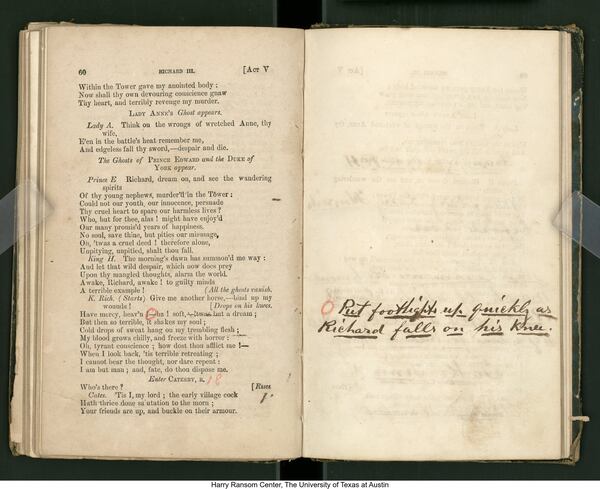 60 RICHARD III. [ACT V
Within the Tower gave my anointed body:
Now shall thy own devouring conscience gnaw
Thy heart, and terribly revenge my murder.
LADY ANNE'S Ghost appears.
Lady A. Think on the wrongs of wretched Anne, thy
wife,
E'en in the battle's heat remember me,
And edgeless fall thy sword,—despair and die.
The Ghosts of PRINCE EDWARD and the DUKE of
YORK appear.
Prince E Richard, dream on, and see the wandering
spirits
Of thy young nephews, murder'd in the Tower:
Could not our youth, our innocence, persuade
Thy cruel heart to spare our harmless lives?
Who, but for thee, alas! might have enjoy'd
Our many promis'd years of happiness.
No soul, save thine, but pities our misusage,
Oh, 'twas a cruel deed! therefore alone,
Unpitying, unpitied, shalt thou fall.
King H. The morning's dawn has summon'd me away:
And let that wild despair, which now does prey
Upon thy mangled thoughts, alarm the world.
Awake, Richard, awake! to guilty minds
A terrible example! (All the ghosts vanish.
K. Rich. (Starts) Give me another horse,—bind up my
wounds! [Drops on his knees.
Have mercy, heav'n ha! soft,—'twas but a dream;
But then so terrible, it shakes my soul;
Cold drops of sweat hang on my trembling flesh;
My blood grows chilly, and freeze with horror:—
Oh, tyrant conscience; how dost thou afflict me!—
When I look back, 'tis terrible retreating;
I cannot bear the thought, nor dare repent:
I am but man; and, fate, do thou dispose me.
Enter CATESBY, R. 18
Who's there? [Rises
Cates. 'Tis I, my lord; the early village cock
Hath thrice done salutation to the morn;
Your friends are up, and buckle on their armour.
O Put footlights up quickly as
Richard falls on his knee.
Harry Ransom Center, The University of Texas at Austin